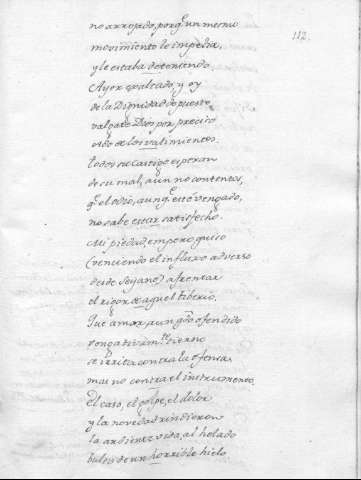 no arrojado, porq̃ un mesmo
112.
movimiento le impedia,
y le estaba deteniendo.
Ayer exaltado, y oy
de la Dignidad depuesto,
valgate Dios por precisso
de los valimientos.
todos su castigo esperan
de su mal, aun no contentos,
q̃ el odio, aunq̃ esté vengado,
no sabe estar satisfecho.
Mi piedad, empero, quiso
(venciendo el influxo adverso
deste Seyano) afrentar
el rigor de aquel tiberio.
Que amor, aun q.do ofendido
vengativam.te tierno
se irrita contra la ofensa
mas no contra el instrumento.
El caso, el golpe, el dolor
y la novedad rindieron
la ardiente vida, al helado
bulto de un horrible hielo.